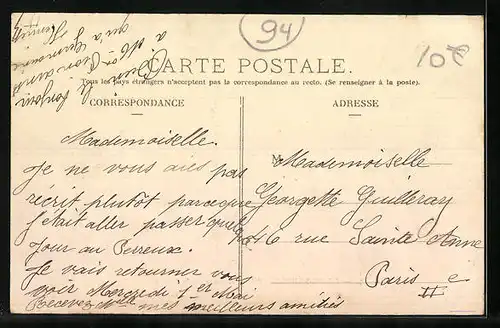 94
10€
CARTE POSTALE.
Tous les pays étrangers n'acceptent pas la correspondance au recto. (Se renseigner à la poste).
CORRESPONDANCE
ADRESSE
le bonjour
Mademoiselle.
Je ne vous aies pas
récrit plutôt parceque
j'était aller passer quelque
Jour au Perreux.
Je vais retourner vous
voir Mercredi 1er Mai
Recevez Melle mes meilleurs amitiés
Mademoiselle
Georgette Guilleray
46 rue Sainte Anne
Paris
IIe